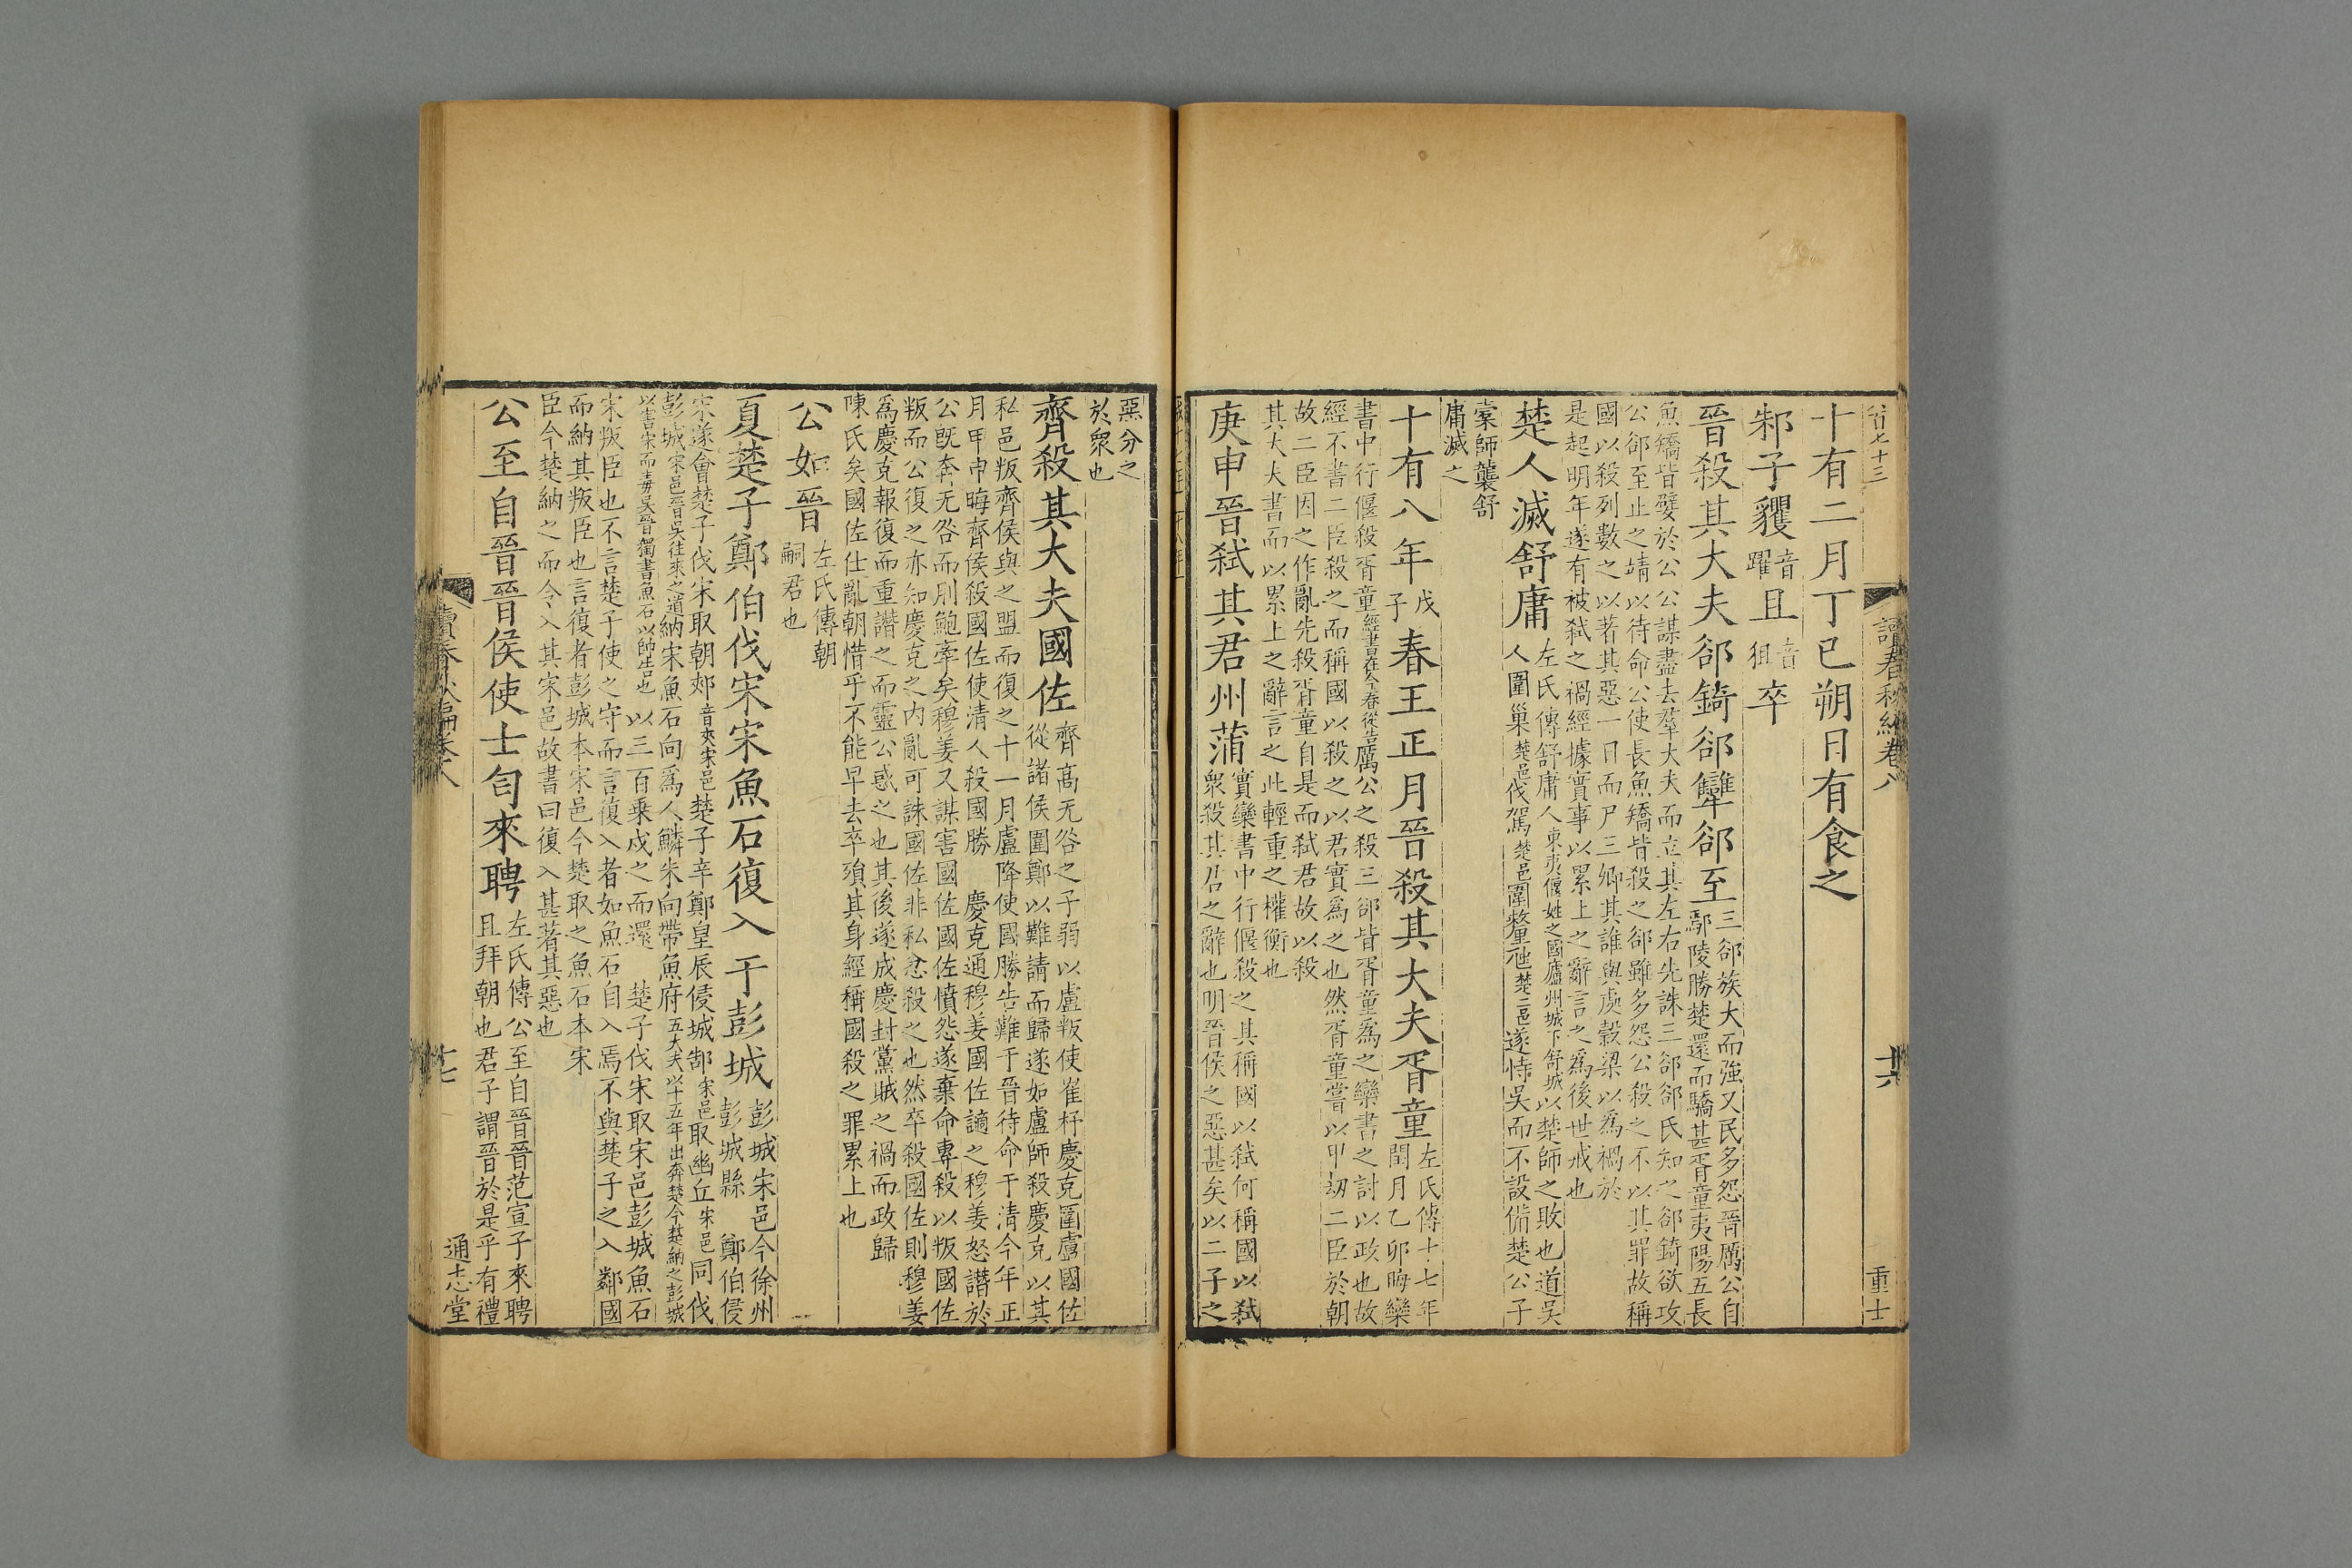 十有二月丁巳朔日有食之
邾子貜音躍且音狙卒
晉殺其大夫郤錡郤犫郤至三郤族大而強又民多怨晉厲公自
鄢陵勝楚還而驕甚胥童夷陽五長
魚矯皆嬖於公公謀盡去羣大夫而立其左右先誅三郤郤氏知之郤錡欲攻
公郤至止之靖以待命公使長魚矯皆殺之郤雖多怨公殺之不以其罪故稱
國以殺列數之以著其惡一日而尸三卿其誰與處穀梁以為禍於
是起明年遂有被弒之禍經據實事以累上之辭言之為後世戒也
楚人滅舒庸左氏傳舒庸人東夷偃姓之國廬州城下舒城以楚師之敗也道吳
人圍巢楚邑伐駕楚邑圍釐虺楚二邑遂恃吳而不設備楚公子
橐師襲舒
庸滅之
十有八年戊子春王正月晉殺其大夫胥童左氏傳十七年
閏月乙卯晦欒
書中行偃殺胥童經書在今春從告厲公之殺三郤皆胥童為之欒書之討以政也故
經不書二臣殺之而稱國以殺之以君實為之也然胥童嘗以甲劫二臣於朝
故二臣因之作亂先殺胥童自是而弒君故以殺
其大夫書而以累上之辭言之此輕重之權衡也
庚申晉弒其君州蒲實欒書中行偃殺之其稱國以弒何稱國以弒
衆殺其君之辭也明晉侯之惡甚矣以二子之
讀春秋編卷八
十六
重士
惡分之
於衆也
齊殺其大夫國佐齊高无咎之子弱以盧叛使崔杼慶克圍盧國佐
從諸侯圍鄭以難請而歸遂如盧師殺慶克以其
私邑叛齊侯與之盟而復之十一月盧降使國勝告難于晉待命于清今年正
月甲申晦齊侯殺國佐使清人殺國勝 慶克通穆姜國佐謫之穆姜怒譖於
公旣奔无咎而刖鮑牽矣穆姜又謀害國佐國佐憤怨遂棄命專殺以叛國佐
叛而公復之亦知慶克之內亂可誅國佐非私忿殺之也然卒殺國佐則穆姜
為慶克報復而重譖之而靈公惑之也其後遂成慶封黨賊之禍而政歸
陳氏矣國佐仕亂朝惜乎不能早去卒殞其身經稱國殺之罪累上也
公如晉左氏傳朝
嗣君也
夏楚子鄭伯伐宋宋魚石復入于彭城彭城宋邑今徐州
彭城縣 鄭伯侵
宋遂會楚子伐宋取朝郟音夾宋邑楚子辛鄭皇辰侵城郜宋邑取幽丘宋邑同伐
彭城宋邑晉吳往來之道納宋魚石向為人鱗朱向帶魚府五大夫以十五年出奔楚今楚納之彭城
以害宋而毒吳晉獨書魚石以帥告也 以三百乗戍之而還 楚子伐宋取宋邑彭城魚石
宋叛臣也不言楚子使之守而言復入者如魚石自入焉不與楚子之入鄰國
而納其叛臣也言復者彭城本宋邑今楚取之魚石本宋
臣今楚納之而今入其宋邑故書曰復入甚著其惡也
公至自晉晉侯使士匄來聘左氏傳公至自晉晉范宣子來聘
且拜朝也君子謂晉於是乎有禮
通志堂